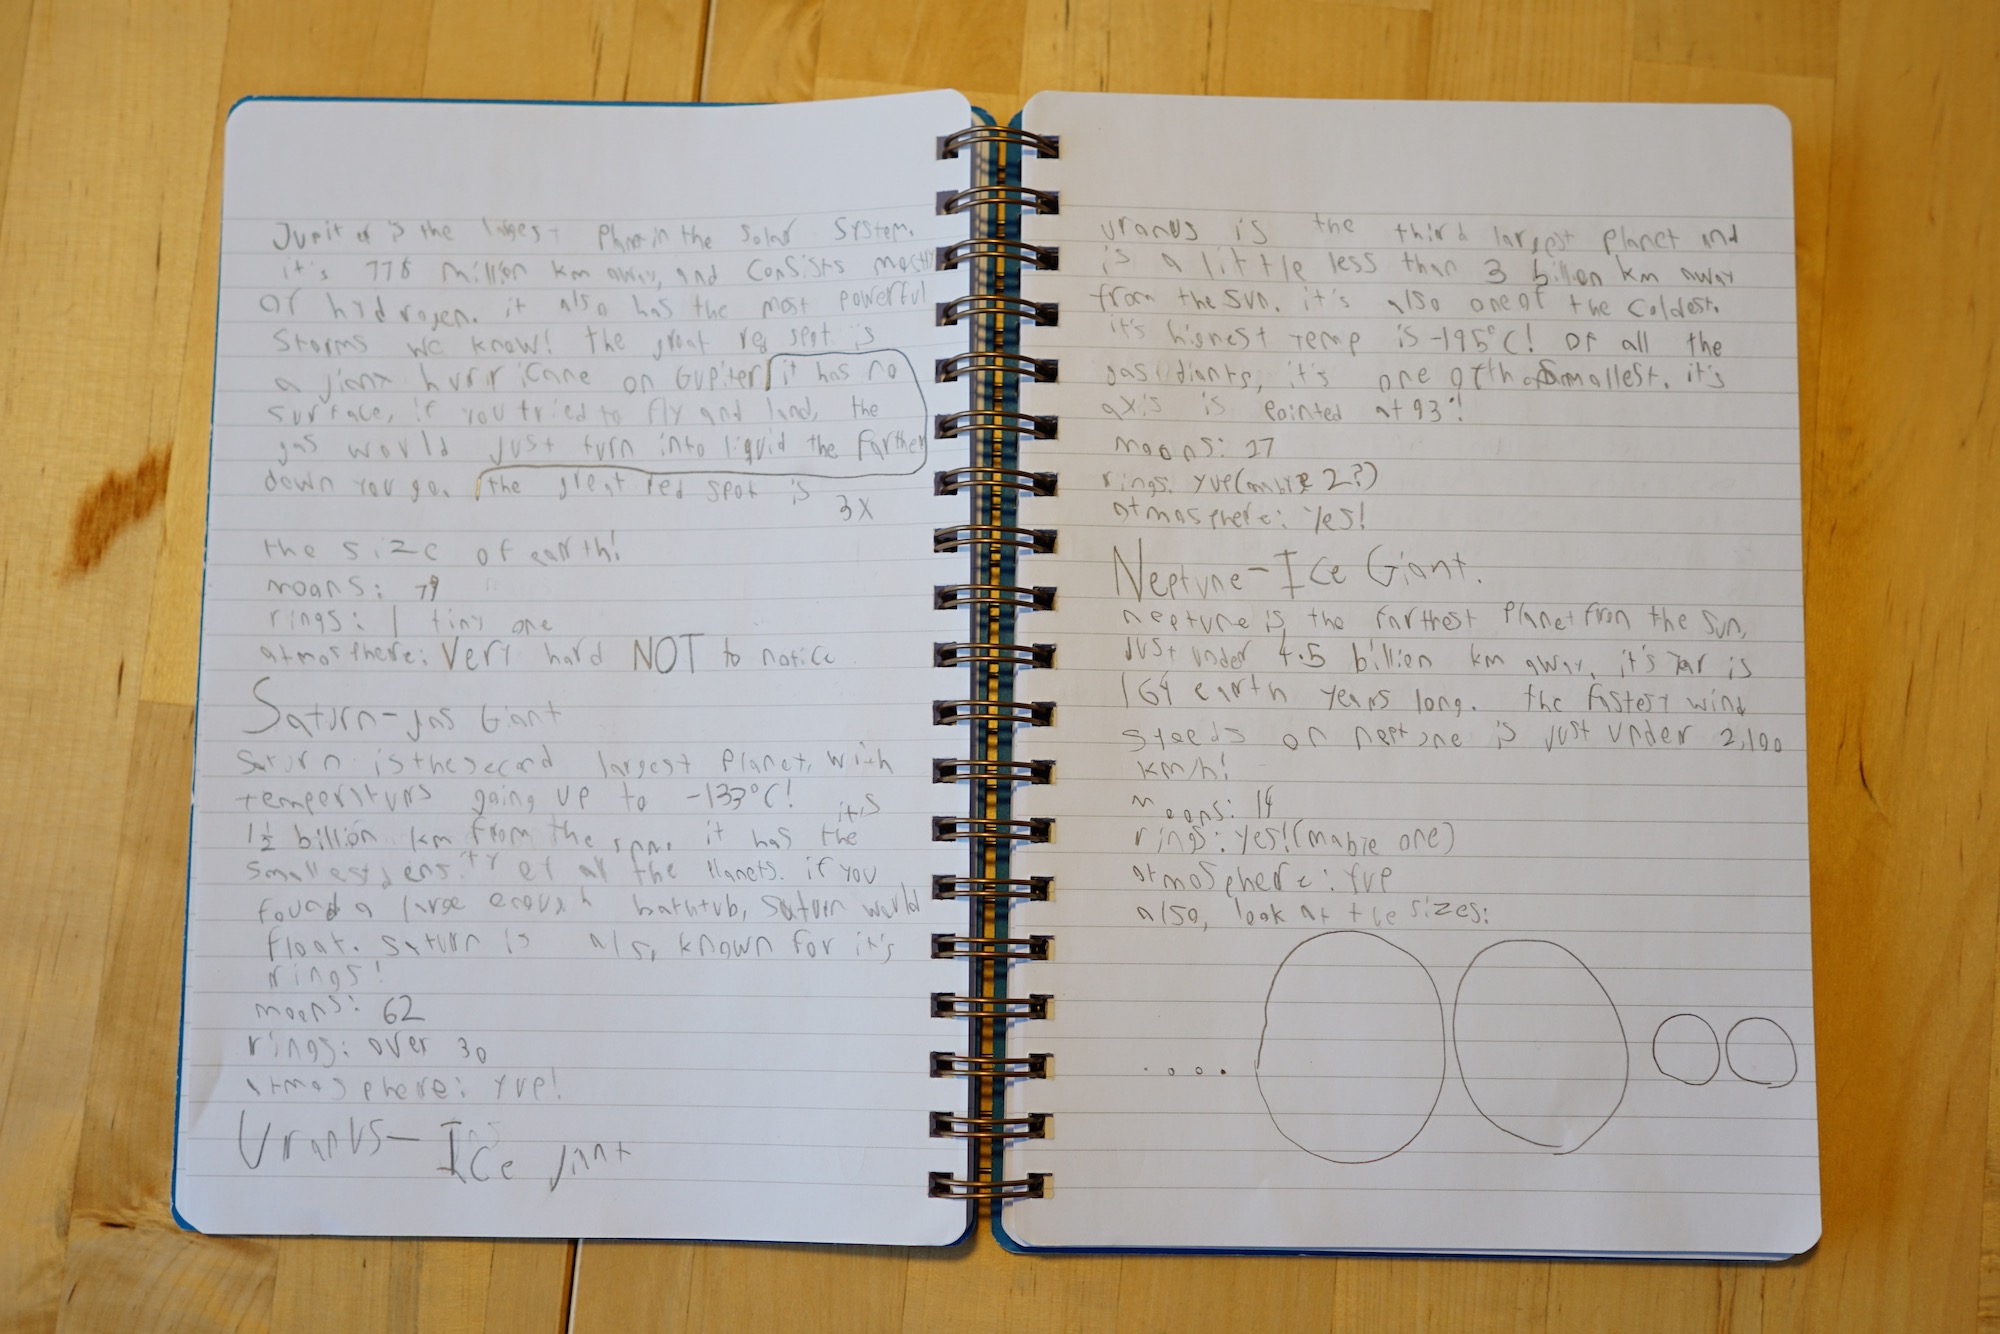 Jupiter is the largest planet in the solar system.
it's 778 million km away, and consists mostly
of hydrogen. it also has the most powerful
storms we know! the great red spot is
a jiant hurricane on Gupiter it has no
surface, if you tried to fly and land, the
gas would just turn into liquid the farther
down you go. the great red spot is
3X
the size of earth!
moons: 79
rings: 1 tiny one
atmosthere: Very hard NOT to notice
Saturn-gas Giant
Saturn is the second largest planet, with
temperaturs going up to -133°C! it's
1½ billion km from the sun. it has the
smallest density of all the planets. if you
found a large enough bathtub, saturn would
float. saturn is also known for it's
rings!
moons: 62
rings: over 30
atmosphere: yup!
Uranus-Ice jiant
uranus is the third largest planet and
is a little less than 3 billion km away
from the sun. it's also one of the coldest.
it's highest temp is -195°C! of all the
gas giants, it's one of the smallest. it's
axis is pointed at 93°!
moons: 27
rings: yup(mabye 2?)
atmosphere: yes!
Neptune-Ice Giant.
neptune is the farthest planet from the sun,
just under 4.5 billion km away. it's year is
164 earth years long. the fastest wind
speeds on neptune is just under 2,100
km/h!
moons: 14
rings: yes!(mabye one)
atmosphere: yup
also, look at the sizes: